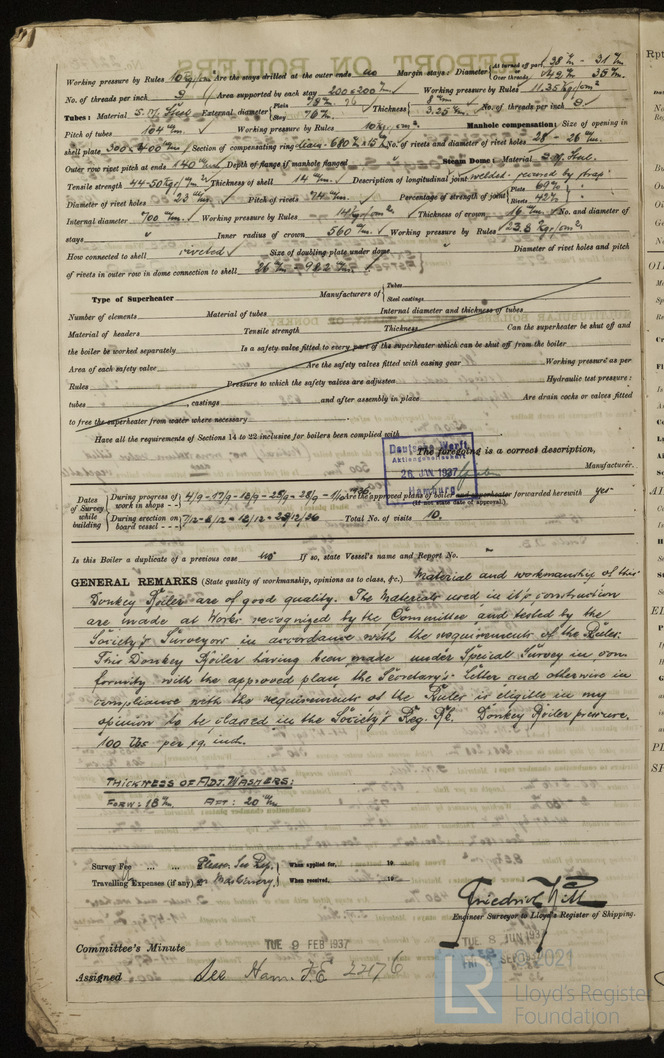 Working pressure by Rules 10 Kg/cm² Are the stays drilled at the outer ends no Margin stays: Diameter { At turned off part, 38 m/m - 31 m/m
Over threads 42 m/m 35 m/m.
No. of threads per inch 9 Area supported by each stay 200 x 200 m/m Working pressure by Rules 11.35 Kg/cm²
Tubes: Material S.M. Steel External diameter { Plain 76 m/m 76 Thickness { 8 m/m No. of threads per inch 9
Stay 76 m/m 3.25 m/m
Pitch of tubes 104 m/m Working pressure by Rules 10 Kg/cm². Manhole compensation: Size of opening in
shell plate 300 x 400 m/m Section of compensating ring No. of rivets and diameter of rivet holes 28 - 26 m/m
Outer row rivet pitch at ends 140 m/m Depth of flange if manhole flanged " Steam Dome: Material S.M. Steel.
Tensile strength 44-50 Kg/m/m² Thickness of shell 14 m/m Description of longitudinal joint welded - covered by strap
Diameter of rivet holes 23 m/m Pitch of rivets 74 m/m Percentage of strength of joint { Plate 69%
Rivets 42%
Internal diameter 700 m/m Working pressure by Rules 14 Kg/cm² Thickness of crown 16 m/m No. and diameter of
stays " Inner radius of crown 560 m/m Working pressure by Rules 23.5 Kg/cm²
How connected to shell riveted Size of doubling plate under dome " Diameter of rivet holes and pitch
of rivets in outer row in dome connection to shell 26 m/m - 92.2 m/m
Type of Superheater Manufacturers of { Tubes
Steel castings
Number of elements Material of tubes Internal diameter and thickness of tubes
Material of headers Tensile strength Thickness Can the superheater be shut off and
the boiler be worked separately Is a safety valve fitted to every part of the superheater which can be shut off from the boiler
Area of each safety valve Are the safety valves fitted with easing gear Working pressure as per
Rules Pressure to which the safety valves are adjusted Hydraulic test pressure:
tubes castings and after assembly in place Are drain cocks or valves fitted
to free the superheater from water where necessary
Have all the requirements of Sections 14 to 22 inclusive for boilers been complied with
The foregoing is a correct description,
Deutsche Werft
Aktiengesellschaft
26 JAN 1937
Hamburg
Manufacturer.
Dates of Survey while building { During progress of work in shops - - 4/9 - 17/9 - 18/9 - 25/9 - 28/9 - 1/10 Are the approved plans of boiler and superheater forwarded herewith yes
(If not state date of approval.)
During erection on board vessel - - - 7/12 - 8/12 - 18/12 - 29/12/36 Total No. of visits 10.
Is this Boiler a duplicate of a previous case no If so, state Vessel's name and Report No. -
GENERAL REMARKS (State quality of workmanship, opinions as to class, &c.) Material and workmanship of this
Donkey Boiler are of good quality. The Materials used in it's construction
are made at Works recognized by the Committee and tested by the
Society's Surveyors in accordance with the requirements of the Rules.
This Donkey Boiler having been made under Special Survey in con-
formity with the approved plan, the Secretary's Letter and otherwise in
compliance with the requirements of the Rules is eligible in my
opinion to be classed in the Society's Reg. Bk. Donkey Boiler pressure.
100 lbs per sq. inch.
THICKNESS OF ADJ. WASHERS:
FORW: 18 m/m AFT: 20 m/m
Survey Fee ... ... Please See Rep. When applied for, 19
Travelling Expenses (if any) on Machinery When received, 19
Friedrich
Engineer Surveyor to Lloyd's Register of Shipping.
Committee's Minute TUE 9 FEB 1937 TUE 8 JUN 1937
FRI SEP
Assigned See Ham. F.E. 22176
2021
LR Lloyd's Register
Foundation